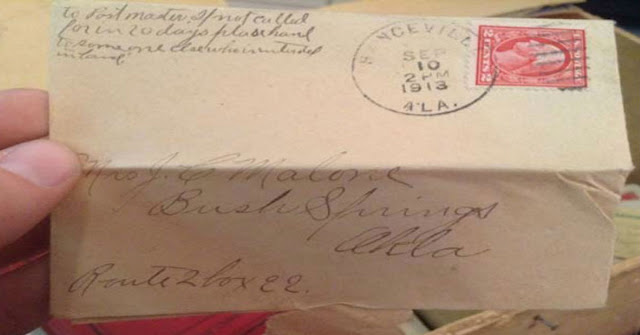 to Post master, If not called
for in 20 days pleas hand
to someone else who is intrested
in land
HANCEVILLE
SEP
10
2 PM
1913
ALA.
2 CENTS 2
Mrs J. C Malone
Rush Springs
Okla
Route 2 box 22.